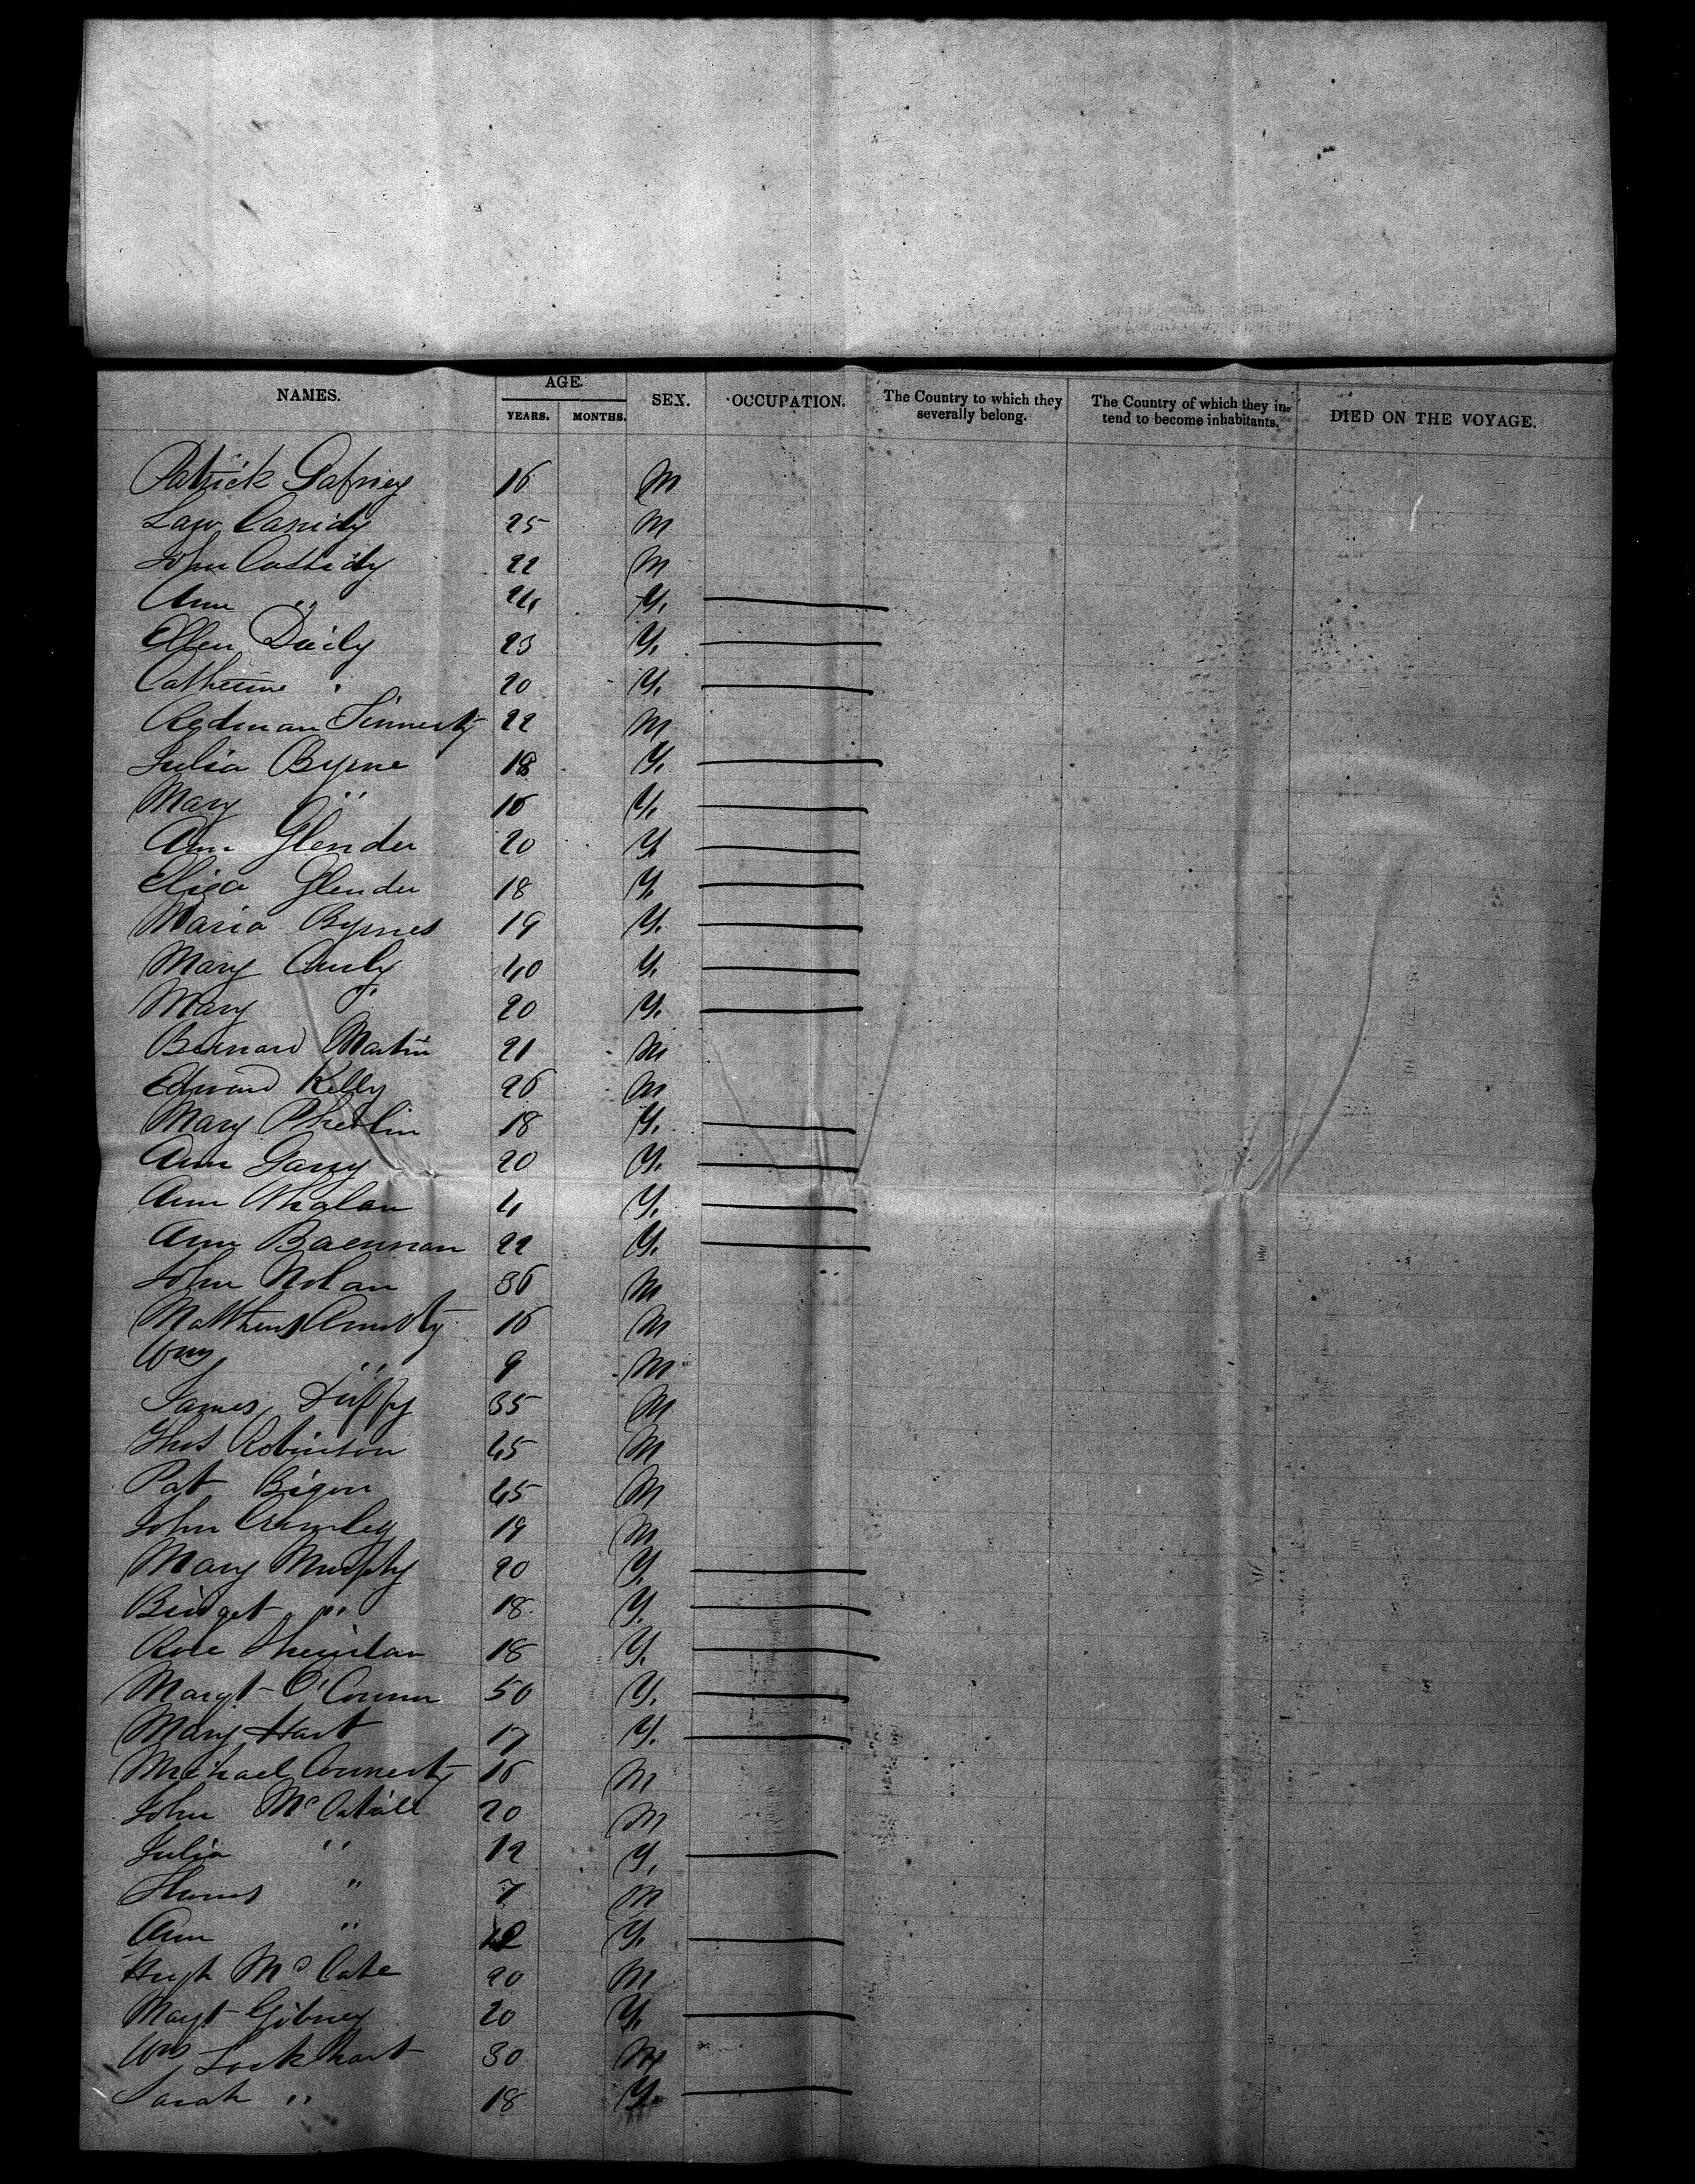 NAMES. AGE. SEX. OCCUPATION. The Country to which they severally belong. The Country of which they intend to become inhabitants. DIED ON THE VOYAGE.
YEARS. MONTHS.
Patrick Gafney 16 M
Law Cassidy 25 M
John Cassidy 22 M
Ann " 24 F.
Ellen Daily 23 F.
Catherine " 20 F.
Redman Finnerty 22 M
Julia Byrne 18 F.
Mary " 16 F.
Ann Glender 20 F
Eliza Glender 18 F.
Maria Byrnes 19 F.
Mary 40 F.
Mary " 20 F.
Bernard Martin 21 M
Edward Kelly 26 M
Mary Phetlin 18 F.
Ann Garry 20 F.
Ann Whalan 4 F.
Ann Brennan 22 F.
John Nolan 36 M
Matthew 16 M
Wm " 9 M
James Duffy 35 M
Thos Robinson 45 M
Pat 45 M
John Crumley 19 M
Mary Murphy 20 F.
Bridget " 18 F.
Rose Sheridan 18 F.
Margt O'Connor 50 F.
Mary Hart 17 F.
Michael Connerty 16 M
John 20 M
Julia " 12 F.
" 7 M
Ann " F.
Hugh McCabe 20 M
Margt Gibney 20 F.
Wm Lockhart 30 M
Sarah " 18 F.